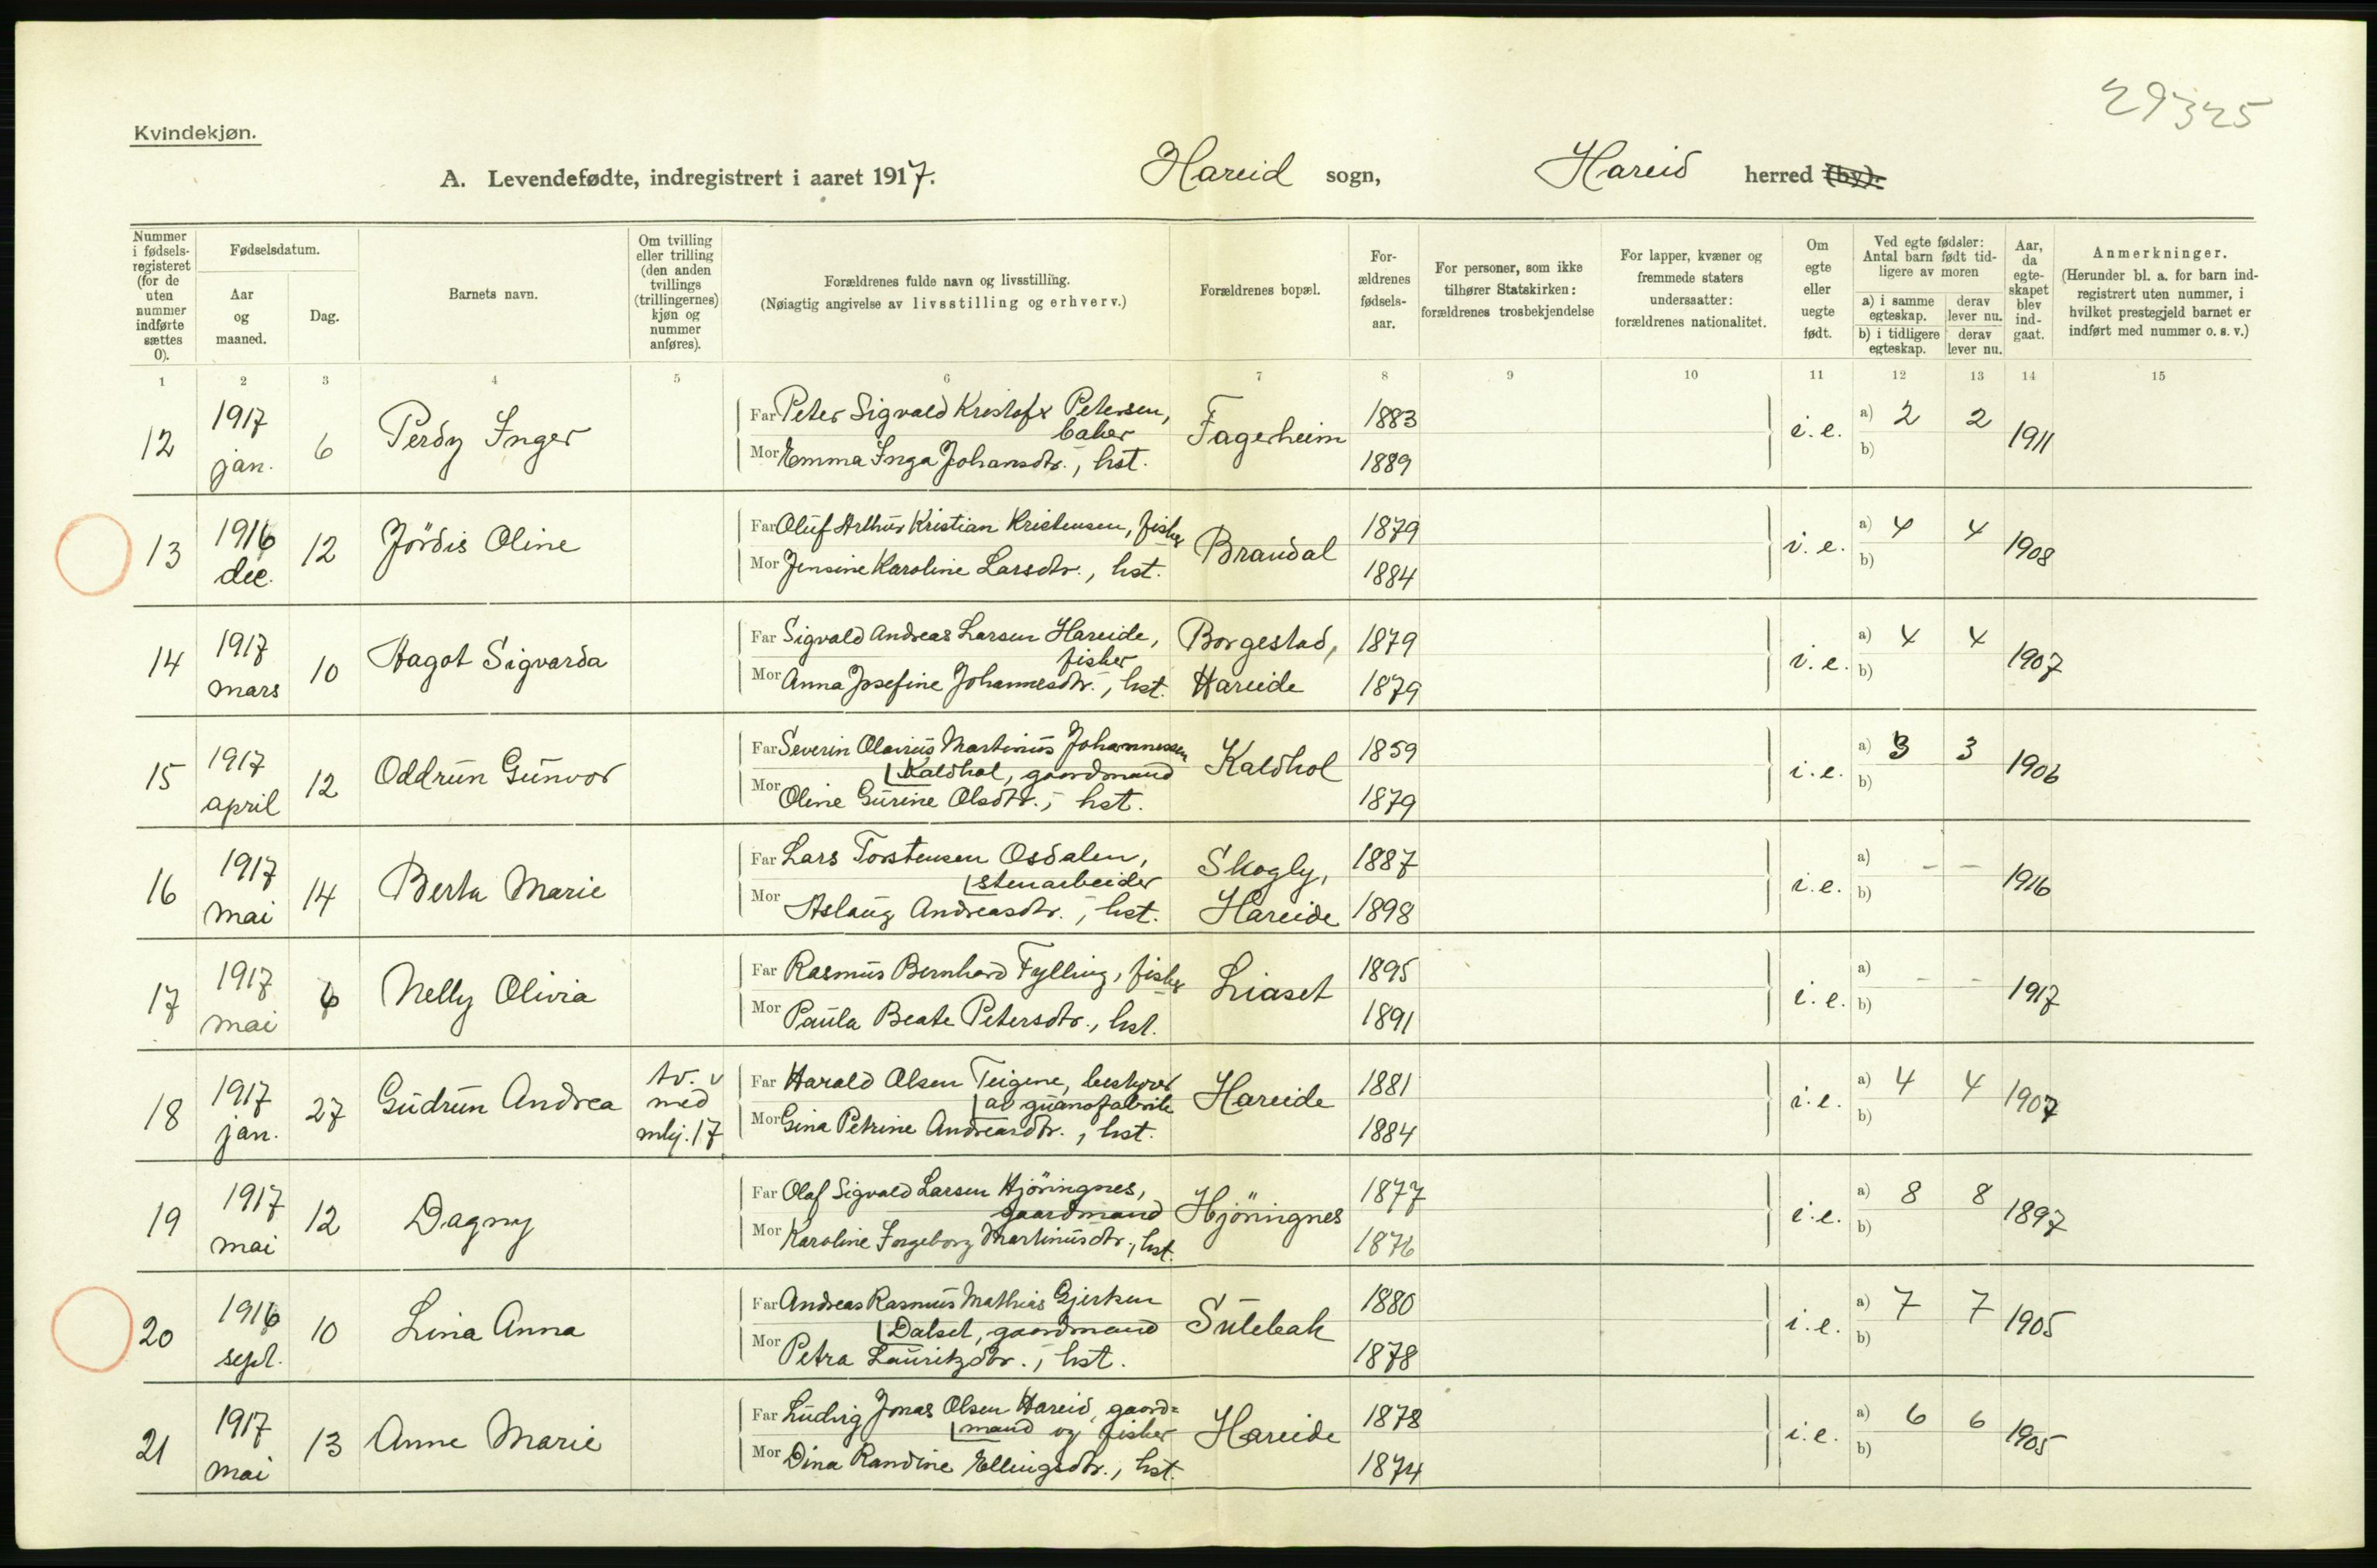 29325
Kvindekjøn.
A. Levendefødte, indregistrert i aaret 1917. Hareid sogn, Hareid herred (by).
Nummer i fødsels-registeret (for de uten nummer indførte sættes 0).
Fødselsdatum.
Aar og maaned.
Dag.
Barnets navn.
Om tvilling eller trilling (den anden tvillings (trillingernes) kjøn og nummer anføres).
Forældrenes fulde navn og livsstilling.
(Nøiagtig angivelse av livsstilling og erhverv.)
Forældrenes bopæl.
For-ældrenes fødsels-aar.
For personer, som ikke tilhører Statskirken: forældrenes trosbekjendelse
For lapper, kvæner og fremmede staters undersaatter: forældrenes nationalitet.
Om egte eller uegte født.
Ved egte fødsler: Antal barn født tid-ligere av moren
a) i samme egteskap. derav lever nu.
b) i tidligere egteskap. derav lever nu.
Aar, da egte-skapet blev ind-gaat.
Anmerkninger.
(Herunder bl. a. for barn ind-registrert uten nummer, i hvilket prestegjeld barnet er indført med nummer o. s. v.)
1 2 3 4 5 6 7 8 9 10 11 12 13 14 15
12 1917 jan. 6 Perdy Inger
Far Peter Sigvald Kristofx Petersen, baker
Mor Emma Inga Johansdtr., hst.
Fagerheim 1883 1889 i.e. a) 2 2 b) 1911
13 1916 dec. 12 Jördis Oline
Far Oluf Arthur Kristian Kristensen, fisher
Mor Jensine Karoline Larsdtr., hst.
Brandal 1879 1884 i.e. a) 4 4 b) 1908
14 1917 mars 10 Hagot Sigvarda
Far Sigvald Andreas Larsen Hareide, fisker
Mor Anna Josefine Johannesdtr., hst.
Borgestad, Hareide 1879 1879 i.e. a) 4 4 b) 1907
15 1917 april 12 Oddrun Gunvor
Far Severin Olavius Martinus Johannessen Kaldhol, gaardmand
Mor Oline Gurine Olsdtr., hst.
Kaldhol 1859 1879 i.e. a) 3 3 b) 1906
16 1917 mai 14 Berta Marie
Far Lars Torstensen Osdalen, stenarbeider
Mor Aslaug Andreasdtr., hst.
Skogly, Hareide 1887 1898 i.e. a) – – b) 1916
17 1917 mai 6 Nelly Olivia
Far Rasmus Bernhard Fylling, fisker
Mor Paula Beate Petersdtr., hst.
Liaset 1895 1891 i.e. a) – – b) 1917
18 1917 jan. 27 Gudrun Andrea tv. med mkj. 17
Far Harald Olsen Teigene, bestyrer av guanofabrik
Mor Gina Petrine Andreasdtr., hst.
Hareide 1881 1884 i.e. a) 4 4 b) 1907
19 1917 mai 12 Dagny
Far Olaf Sigvald Larsen Hjöringnes, gaardmand
Mor Karoline Ingeborg Martinusdtr., hst.
Hjöringnes 1877 1876 i.e. a) 8 8 b) 1897
20 1916 sept. 10 Lina Anna
Far Andreas Rasmus Mathias Gjertsen Dalset, gaardmand
Mor Petra Lauritzdtr., hst.
Sulebak 1880 1878 i.e. a) 7 7 b) 1905
21 1917 mai 13 Anne Marie
Far Ludvig Jonas Olsen Hareid, gaard=mand og fisker
Mor Dina Randine Ellingsdtr., hst.
Hareide 1878 1874 i.e. a) 6 6 b) 1905